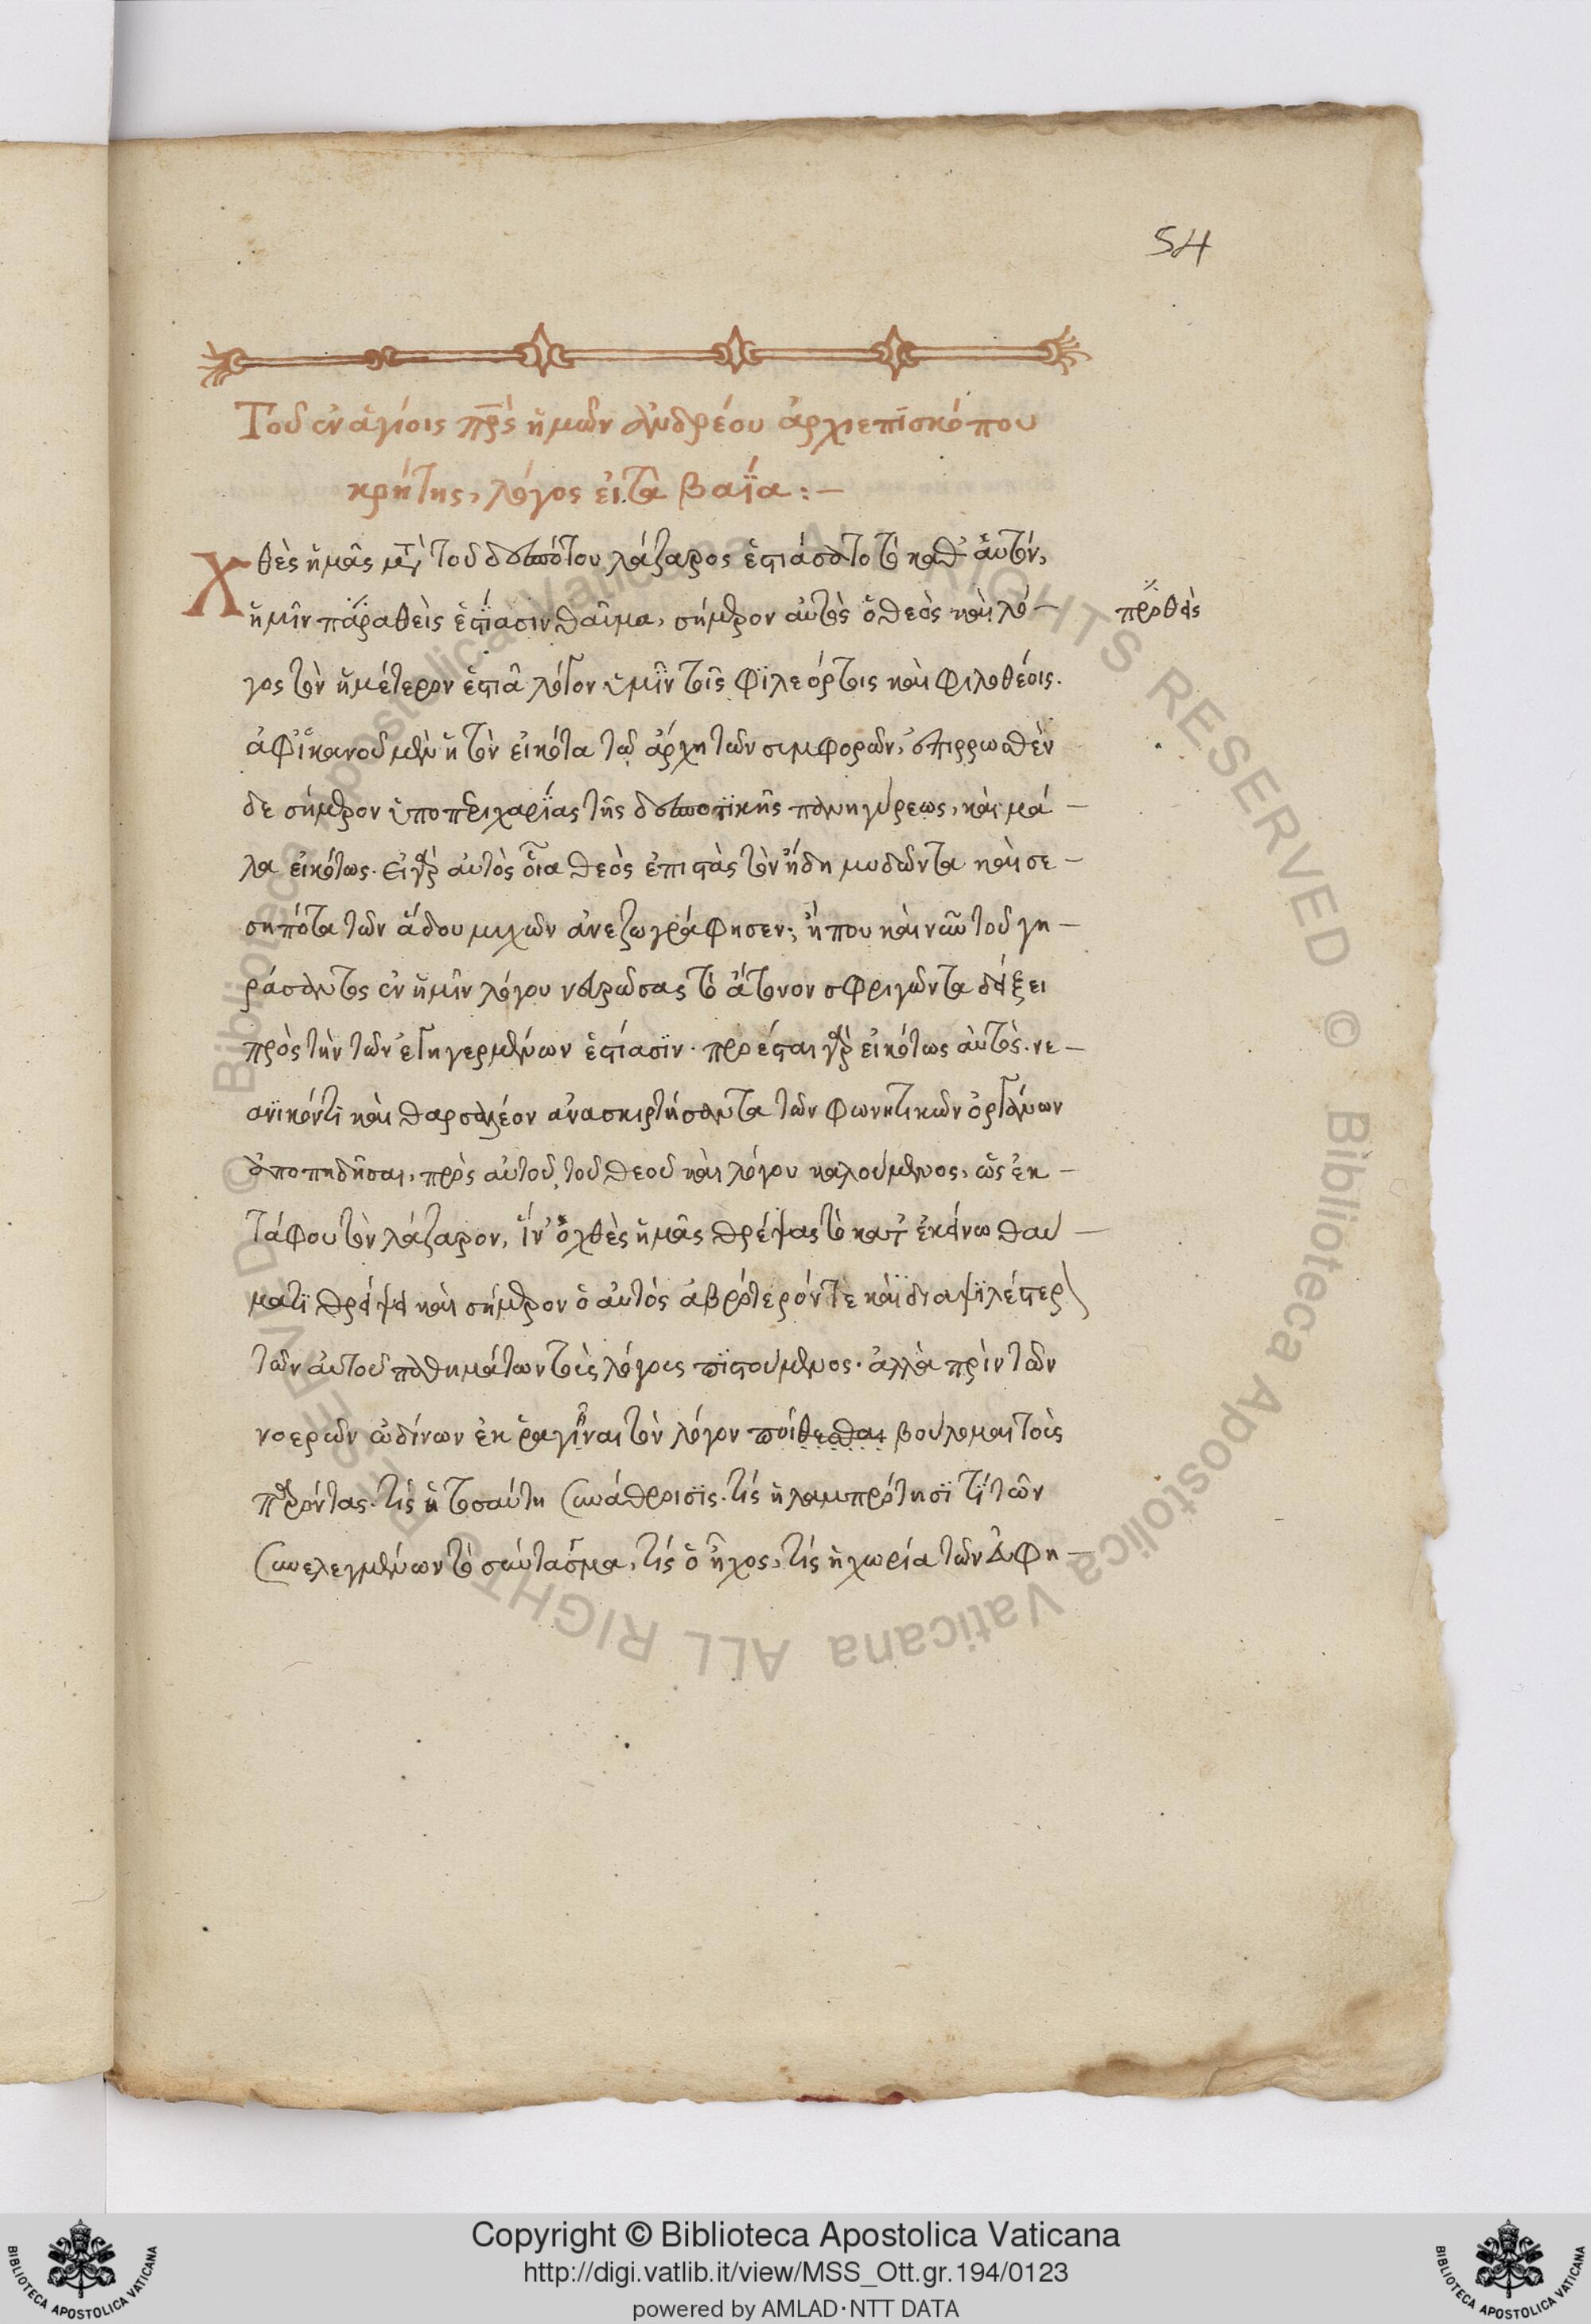 54
Τοῦ ἐν ἁγίοις πρς ἡμῶν ἀνδρέου ἀρχιεπισκόπου
κρήτης, λόγος εἰ τὰ βαΐα:—
Χθὲς ἡμᾶς μετὰ τοῦ δεσπότου λάζαρος ἑστιάσατο τὸ καθ' ἑαυτόν,
ἡμῖν παραθεὶς ἑστίασιν θαῦμα, σήμερον αὐτὸς ὁ θεὸς καὶ λό—
προθεὶς
γος τὸν ἡμέτερον ἑστιᾶ λόγον ὑμῖν τοῖς φιλεόρτοις καὶ φιλοθέοις.
ἀφικανοῦ μὲν ἢ τὸν εἰκότα τῶ ἀρχῆ τῶν συμφορῶν, ἐπιρρωσθὲν
δε σήμερον ὑπο περιχαρίας τῆς δεσποτικῆς πανηγύρεως, καὶ μά—
λα εἰκότως. εἰ γὰρ αὐτὸς οἷα θεὸς ἐπιστὰς τὸν ἤδη μυδῶντα καὶ σε—
σηπότα τῶν ἄδου μυχῶν ἀνεζωγράφησεν; ἤπου καὶ νῦν τοῦ γη—
ράσαντος ἐν ἡμῖν λόγου νευρώσας τὸ ἄτονον σφριγῶντα δείξει
πρὸς τὴν τῶν ἐγηγερμένων ἑστίασιν. προέσται γὰρ εἰκότως αὐτὸς. νε—
ανικόντι καὶ θαρσαλέον ἀνασκιρτήσαντα τῶν φωνητικῶν ὀργάνων
ἀποπηδῆσαι, πρὸς αὐτοῦ τοῦ θεοῦ καὶ λόγου καλούμενος, ὡς ἐκ—
τάφου τὸν λάζαρον, ἵν' ὁ χθὲς ἡμᾶς θρέψας τὸ κατ' ἐκείνω θαύ—
ματι θρέψει καὶ σήμερον ὁ αὐτὸς ἁβρότερόν τε καὶ διαψιλέστερ
τῶν αὐτοῦ παθημάτων τοῖς λόγοις πιστούμενος. ἀλλὰ πρὶν τῶν
νοερῶν ὠδίνων ἐκραγῆναι τὸν λόγον πύθεσθαι βούλομαι τοὺς
παρόντας. τίς ἡ τοσαύτη συνάθροισις. τίς ἡ λαμπρότησι τί τῶν
συνελεγμένων τὸ σύνταγμα, τίς ὁ ἦχος, τίς ἡ χωρία τῶν εὐφη—
Copyright © Biblioteca Apostolica Vaticana
http://digi.vatlib.it/view/MSS_Ott.gr.194/0123
powered by AMLAD·NTT DATA
BIBLIOTECA APOSTOLICA VATICANA
BIBLIOTECA APOSTOLICA VATICANA
© Biblioteca Apostolica Vaticana ALL RIGHTS RESERVED © Biblioteca Apostolica Vaticana ALL RIGHTS RESERVED